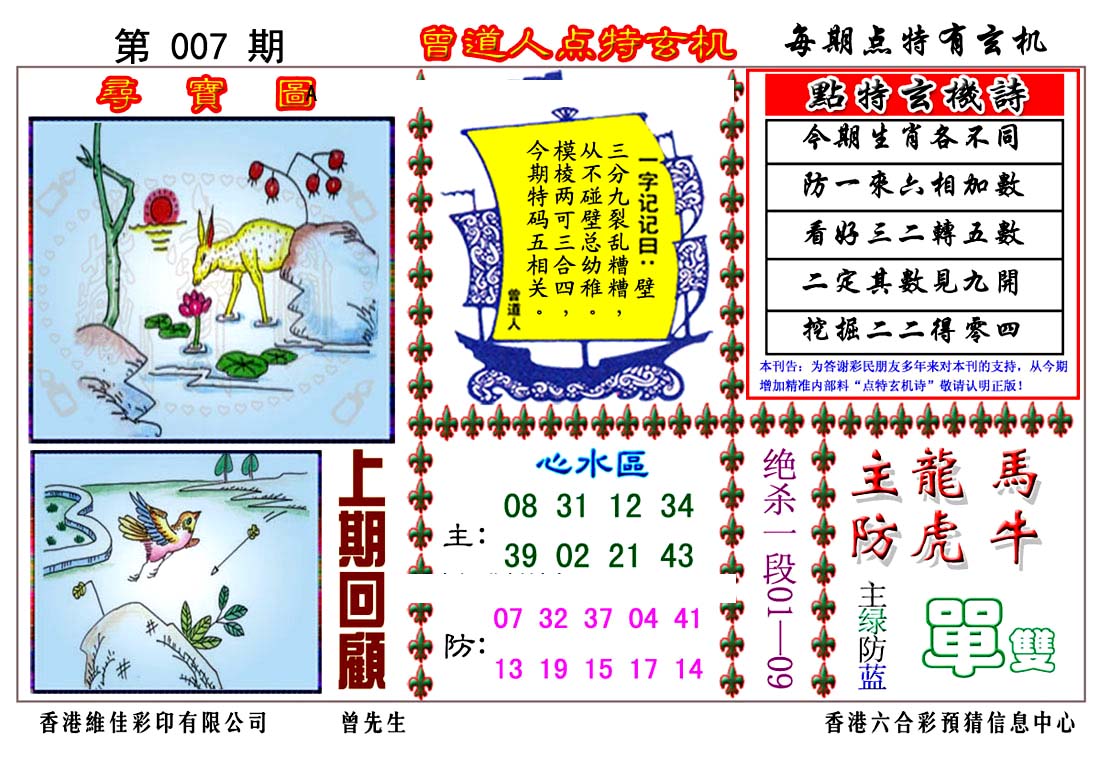 第 007 期
曾道人点特玄机
每期点特有玄机
尋寶圖A
一字记记曰：壁
三分九裂乱糟糟，
从不碰壁总幼稚。
模棱两可三合四，
今期特码五相关。
曾道人
點特玄機詩
今期生肖各不同
防一來六相加數
看好三二轉五數
二定其數見九開
挖掘二二得零四
本刊告：为答谢彩民朋友多年来对本刊的支持，从今期
增加精准内部料“点特玄机诗”敬请认明正版！
上期回顧
心水區
主：
08 31 12 34
39 02 21 43
防：
07 32 37 04 41
13 19 15 17 14
绝杀一段01—09
主龍 馬
防虎 牛
主绿防蓝
單雙
香港維佳彩印有限公司
曾先生
香港六合彩預猜信息中心